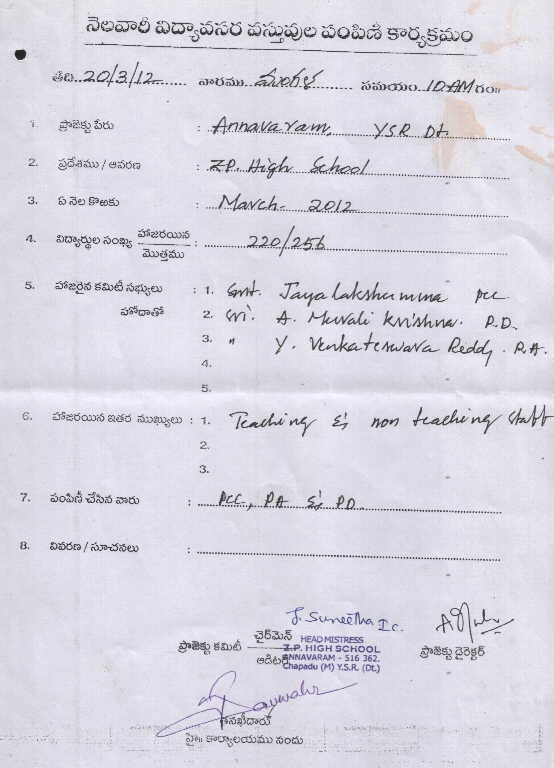 నెలవారీ విద్యావసర వస్తువుల పంపిణీ కార్యక్రమం
తేది 20/3/12 వారము మంగళ సమయం 10 AM గం॥
1. ప్రాజెక్టు పేరు : Annavaram, YSR Dt.
2. ప్రదేశము / ఆవరణ : ZP. High School
3. ఏ నెల కొఱకు : March - 2012
4. విద్యార్థుల సంఖ్య హాజరయిన / మొత్తము : 220/256
5. హాజరైన కమిటీ సభ్యులు : 1. Smt. Jayalakshumma PCC
హోదాతో 2. Sri. A. Murali Krishna. P.D.
3. " Y. Venkateswara Reddy. P.A.
4.
5.
6. హాజరయిన ఇతర ముఖ్యులు : 1. Teaching & non teaching staff
2.
3.
7. పంపిణీ చేసిన వారు : PCC, PA & PD.
8. వివరణ / సూచనలు :
J. Suneetha I/c.
ప్రాజెక్టు కమిటీ ఛైర్‌మెన్ / ఆడిటర్ ప్రాజెక్టు డైరెక్టర్
HEADMISTRESS
Z.P. HIGH SCHOOL
ANNAVARAM - 516 362.
Chapadu (M) Y.S.R. (Dt.)
హై॥ కార్యాలయము నందు